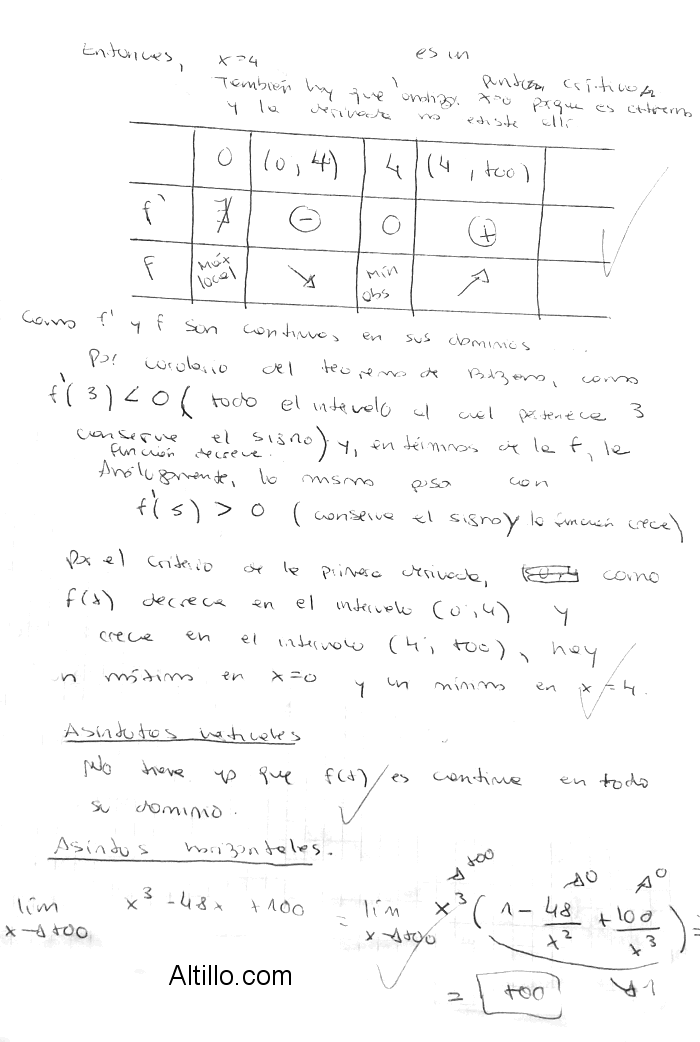 Entonces, x=4 es un punto crítico
También hay que analizar x=0 porque es extremo
y la derivada no existe allí
0 (0, 4) 4 (4, +∞)
f' ∄ ⊖ 0 ⊕
f máx local ↘ mín abs ↗
como f' y f son continuas en sus dominios
Por corolario del teorema de Bolzano, como
f'(3) < 0 ( todo el intervalo al cual pertenece 3
conserva el signo) y, en términos de la f, la
función decrece.
Análogamente, lo mismo pasa con
f'(5) > 0 (conserva el signo y la función crece)
Por el criterio de la primera derivada, como
f(x) decrece en el intervalo (0,4) y
crece en el intervalo (4, +∞), hay
un máximo en x=0 y un mínimo en x=4.
Asíntotas verticales
No tiene ya que f(x) es continua en todo
su dominio.
Asíntotas horizontales.
lím x→+∞ x³ - 48x + 100 = lím x→+∞ x³ ( 1 - 48/x² + 100/x³ ) =
→+∞ →0 →0
→1
= +∞
Altillo.com